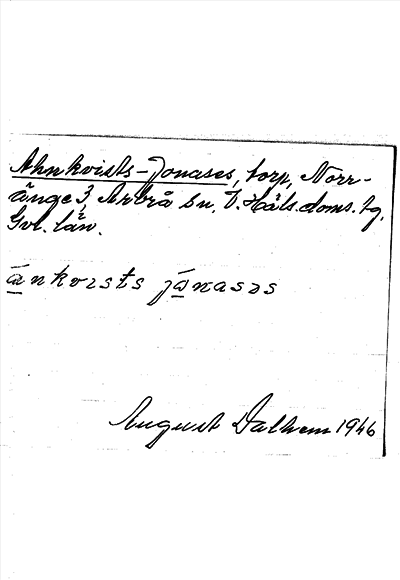 Ahnkvists-Jonases, torp, Norr-
änge 3, Arbrå sn, V. Häls. doms. tg,
Gvl. län.
ánkvısts jónasəs
August Dalhem 1946